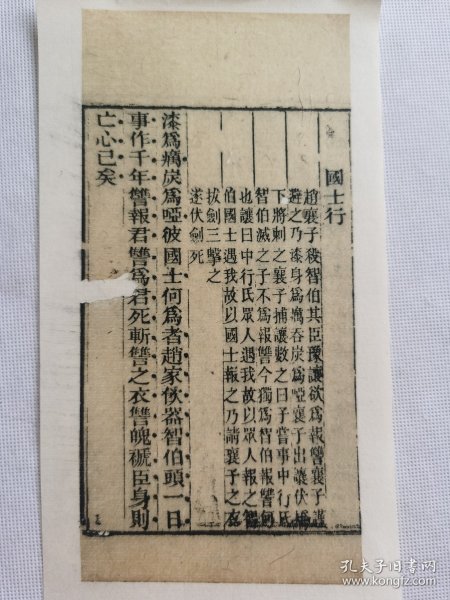 國士行
趙襄子殺智伯其臣豫讓欲爲報讐襄子謹
避之乃漆身爲癘吞炭爲啞襄子出讓伏橋
下將刺之襄子捕讓數之曰子嘗事中行氏
智伯滅之子不爲報讐今獨爲智伯報讐何
也讓曰中行氏眾人遇我故以眾人報之智
伯國士遇我故以國士報之乃請襄子之衣
拔劍三擊之
遂伏劍死
漆爲癘炭爲啞彼國士何爲者趙家飲器智伯頭一日
事作千年讐報君讐爲君死斬讐之衣讐魄褫臣身則
亡心已矣
孔夫子旧书网
www.kongfz.com